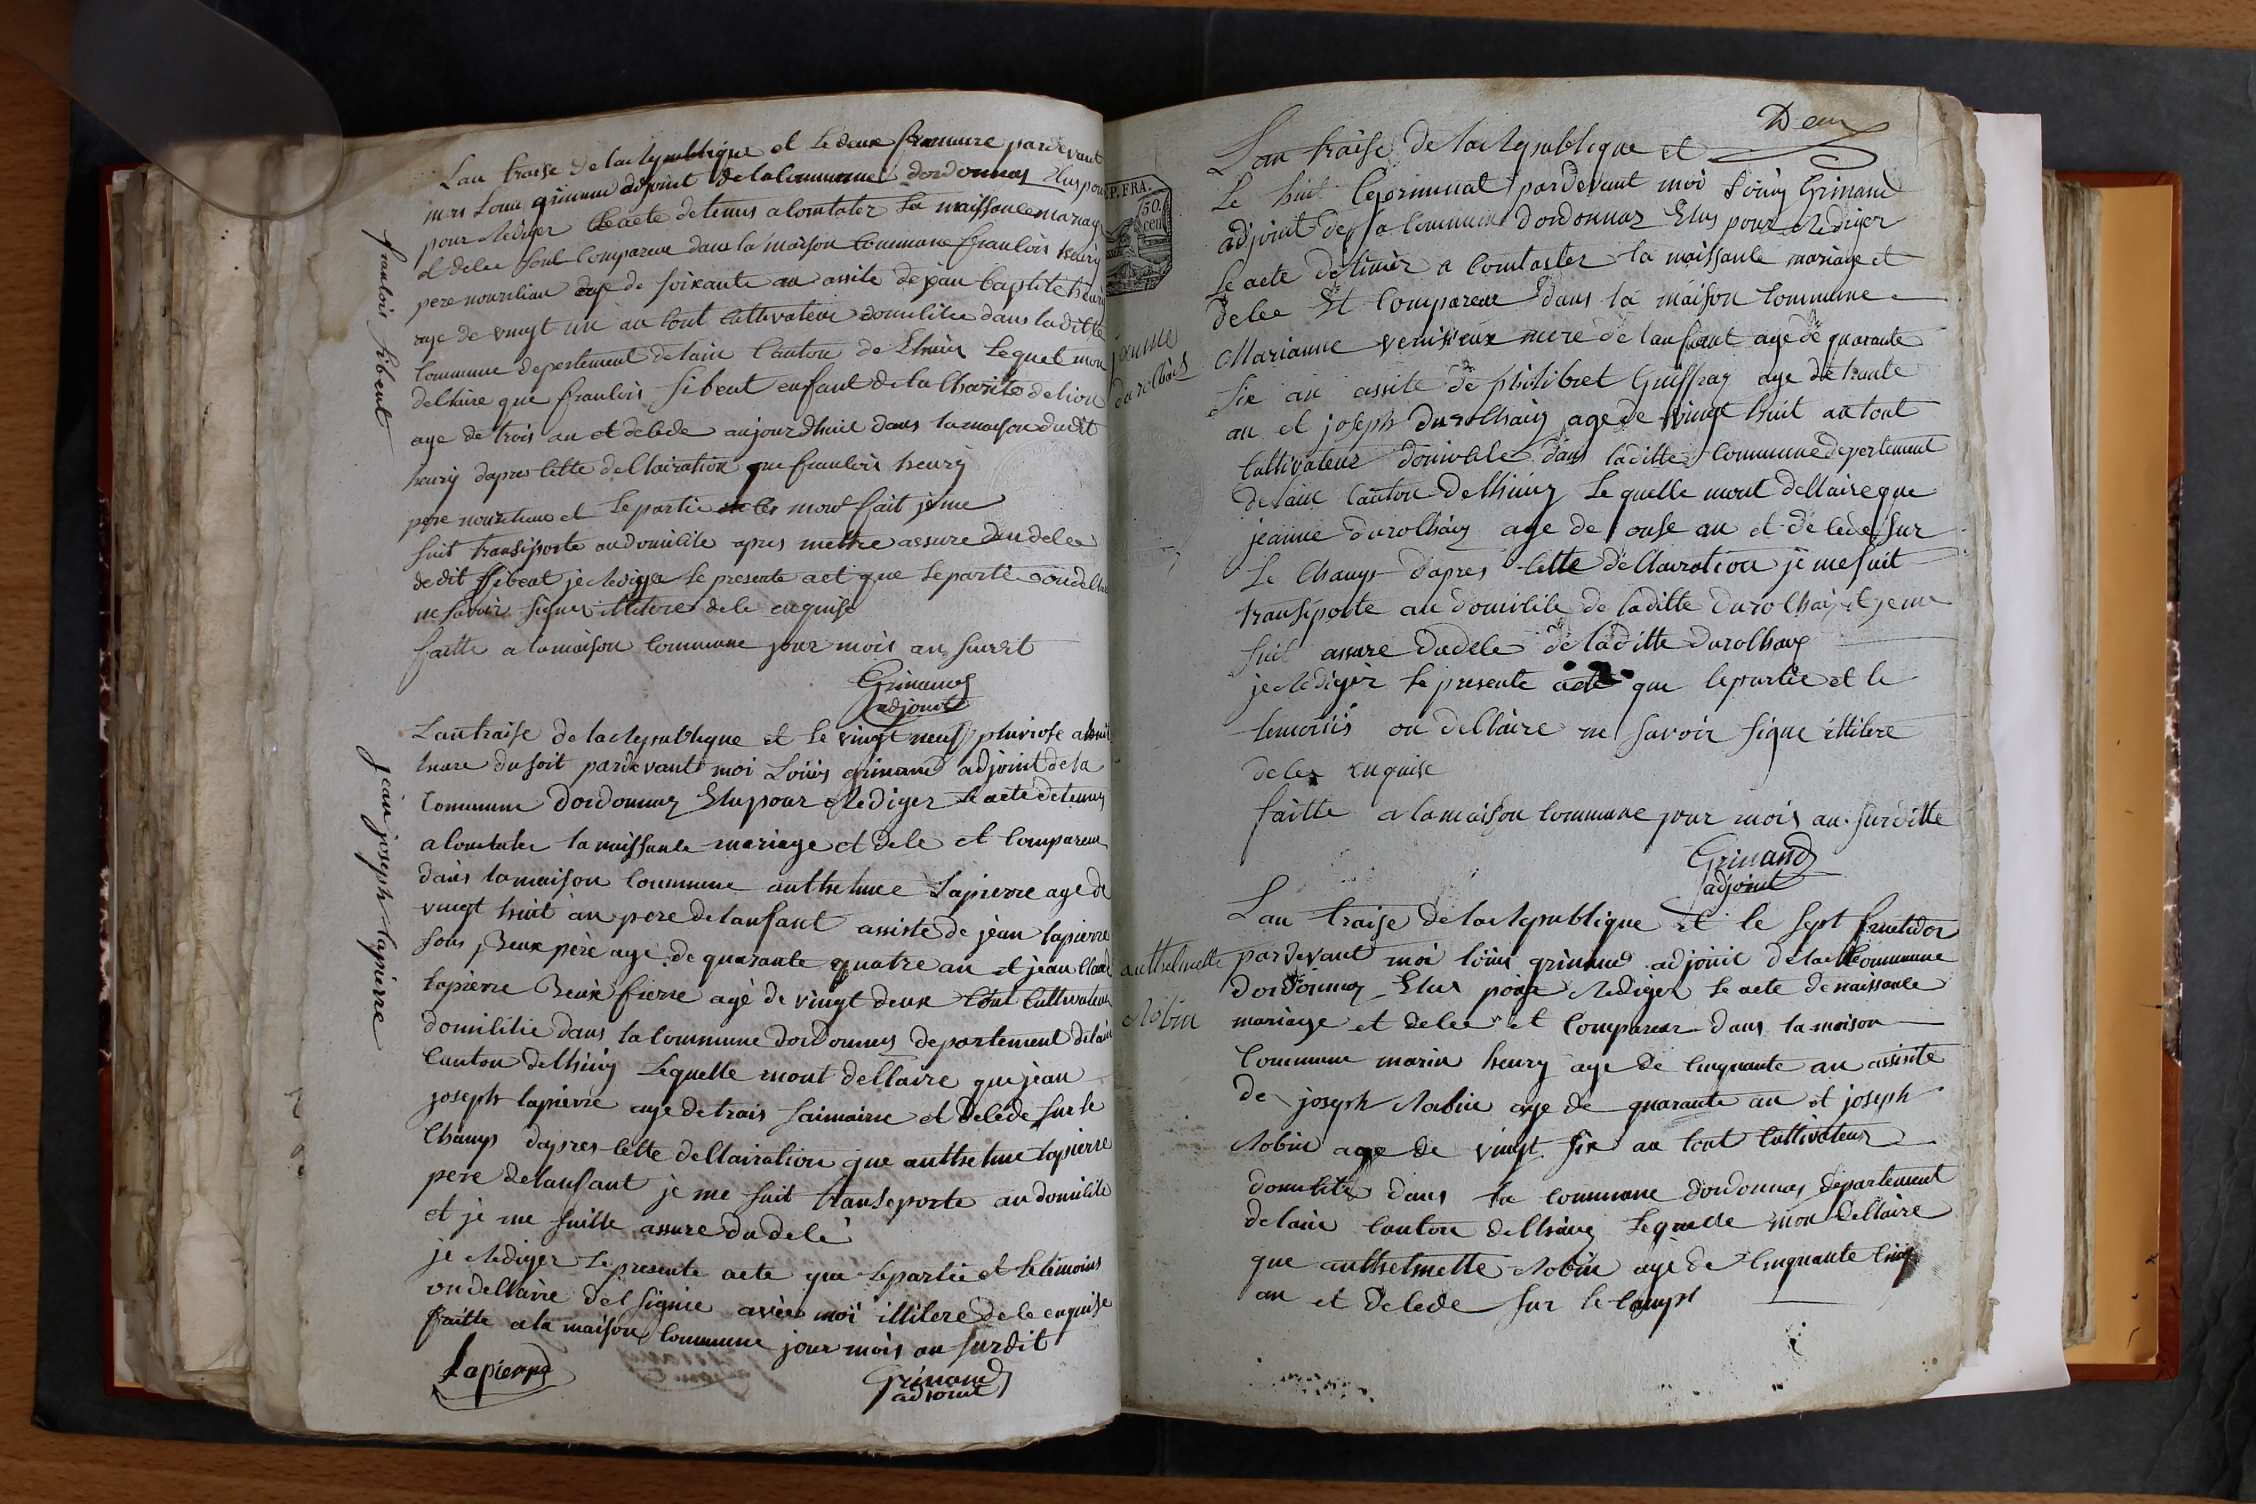 Lan traise de la Republique et le deux frimaire pardevant
mois Louis grinand adjoint de la Commune dordonnas Elus pour
pour Rediger Le acte de tenus a Contater La naissance mariage
et delee sont Compareue dans la maison Commune francois henry
pere nourician age de soixante an assite de jean baptiste henry
age de vingt un an tout Cultivateur domicilice dans laditte
Commune depertement delain Canton de Lhuis Lequel mon
declaire que francois sibeut enfant de la Charite delion
age de trois an et decede aujourdhuit dans la maison dudit
henry dapres cette decclairation que francois henry
pere nouricieux et le partie mont fait je me
suit transsporte au domicile apres mettre assure du delee
de dit sibeut je Rediger Le presente act que le partie on declaire
ne savoir signer de le enquise
faitte a la maison Commune jour mois an surdit
Grinand
adjoint
francois sibeut
Lan traise de la Republique et le vingt neuf pluviose a huit
heure du soit pardevant moi Louis grinand adjoint de la
Commune dordonnas Elu pour Rediger Le acte de tenus
a Contater la naissance mariage et dele et Compareu
dans la maison Commune anthelme Lapierre age de
vingt huit an pere de lanfant assiste de jean lapierre
sons Beux père age de quarante quatre an et jean Claud
lapierre Beux frerre agé de vingt deux tout Cultivateur
domicilie dans la Commune dordonnas departement delain
Canton delhuis Lequelle mont declaire que jean
joseph lapierre age de trois saimaine et decede sur le
Champ dapres cette decclairation que anthelme lapierre
pere de lanfant je me suit transeporte au domicile
et je me suitte assure du delé
je Rediger Le presente acte que le partie et le temoins
on declaire del signie avec moi de le enquise
faitte a la maison Commune jour mois an surdit
Lapierre
Grinand
adjoint
jean joseph lapierre
P. FRA.
50.
cen
Deux
Lan traise de la Republique et
Le huit Germinal pardevant moi Loüis Grinand
adjoint de la Commune dordonnas Elus pour Rediger
Le acte de tenir a Contaster la naissance mariage et
delee Et Compareue dans la maison Commune
Marianne mere de lanfant age de quarante
six an assite de philibert Guiffray age de trante
an et joseph durolhaiy age de vingt huit an tout
Cultivateur domicile dans laditte Commune depertement
de lain Canton delhuis Lequelle mont declaire que
jeanne durolhaiy age de onse an et de cedé sur
Le Champ dapres cette declairation je me suit
transsporte au domicile de laditte durolhaiy et je me
suit assure dudele de laditte durolhaiy
je Rediger Le presente acte que le partie et le
temoins on declaire ne savoir signe
delee enquise
faitte a la maison Commune jour mois an surditte
Grinand
adjoint
jeanne
Lan traise de la Republique et le sept fructidor
pardevant moi loüis grinand adjoint de la Commune
dordonnas Elus pour Rediger Le acte de naissance
mariage et delee et Compareue dans la maison
Commune marin henry age de Cinquante an assiste
de joseph Robin age de quarante an et joseph
Robin age de vingt six an tout Cultivateur
domicile dans La commune dordonnas departement
de lain Canton delhuis Lequelle mon declaire
que anthelmette Robin agé de Cinquante Cinq
an et decede sur le Camp
anthelmette
Robin